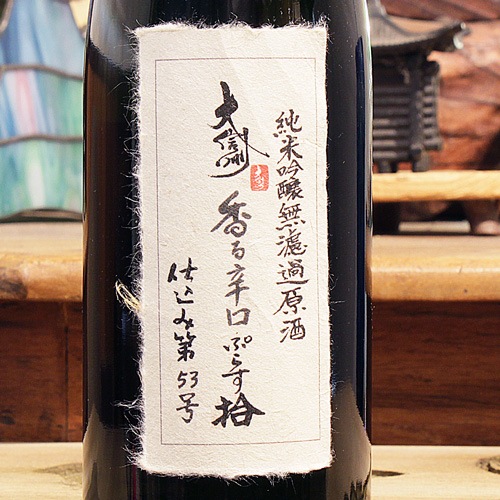 純米吟醸無濾過原酒
大信州
香る辛口ぷらす拾
仕込み第53号